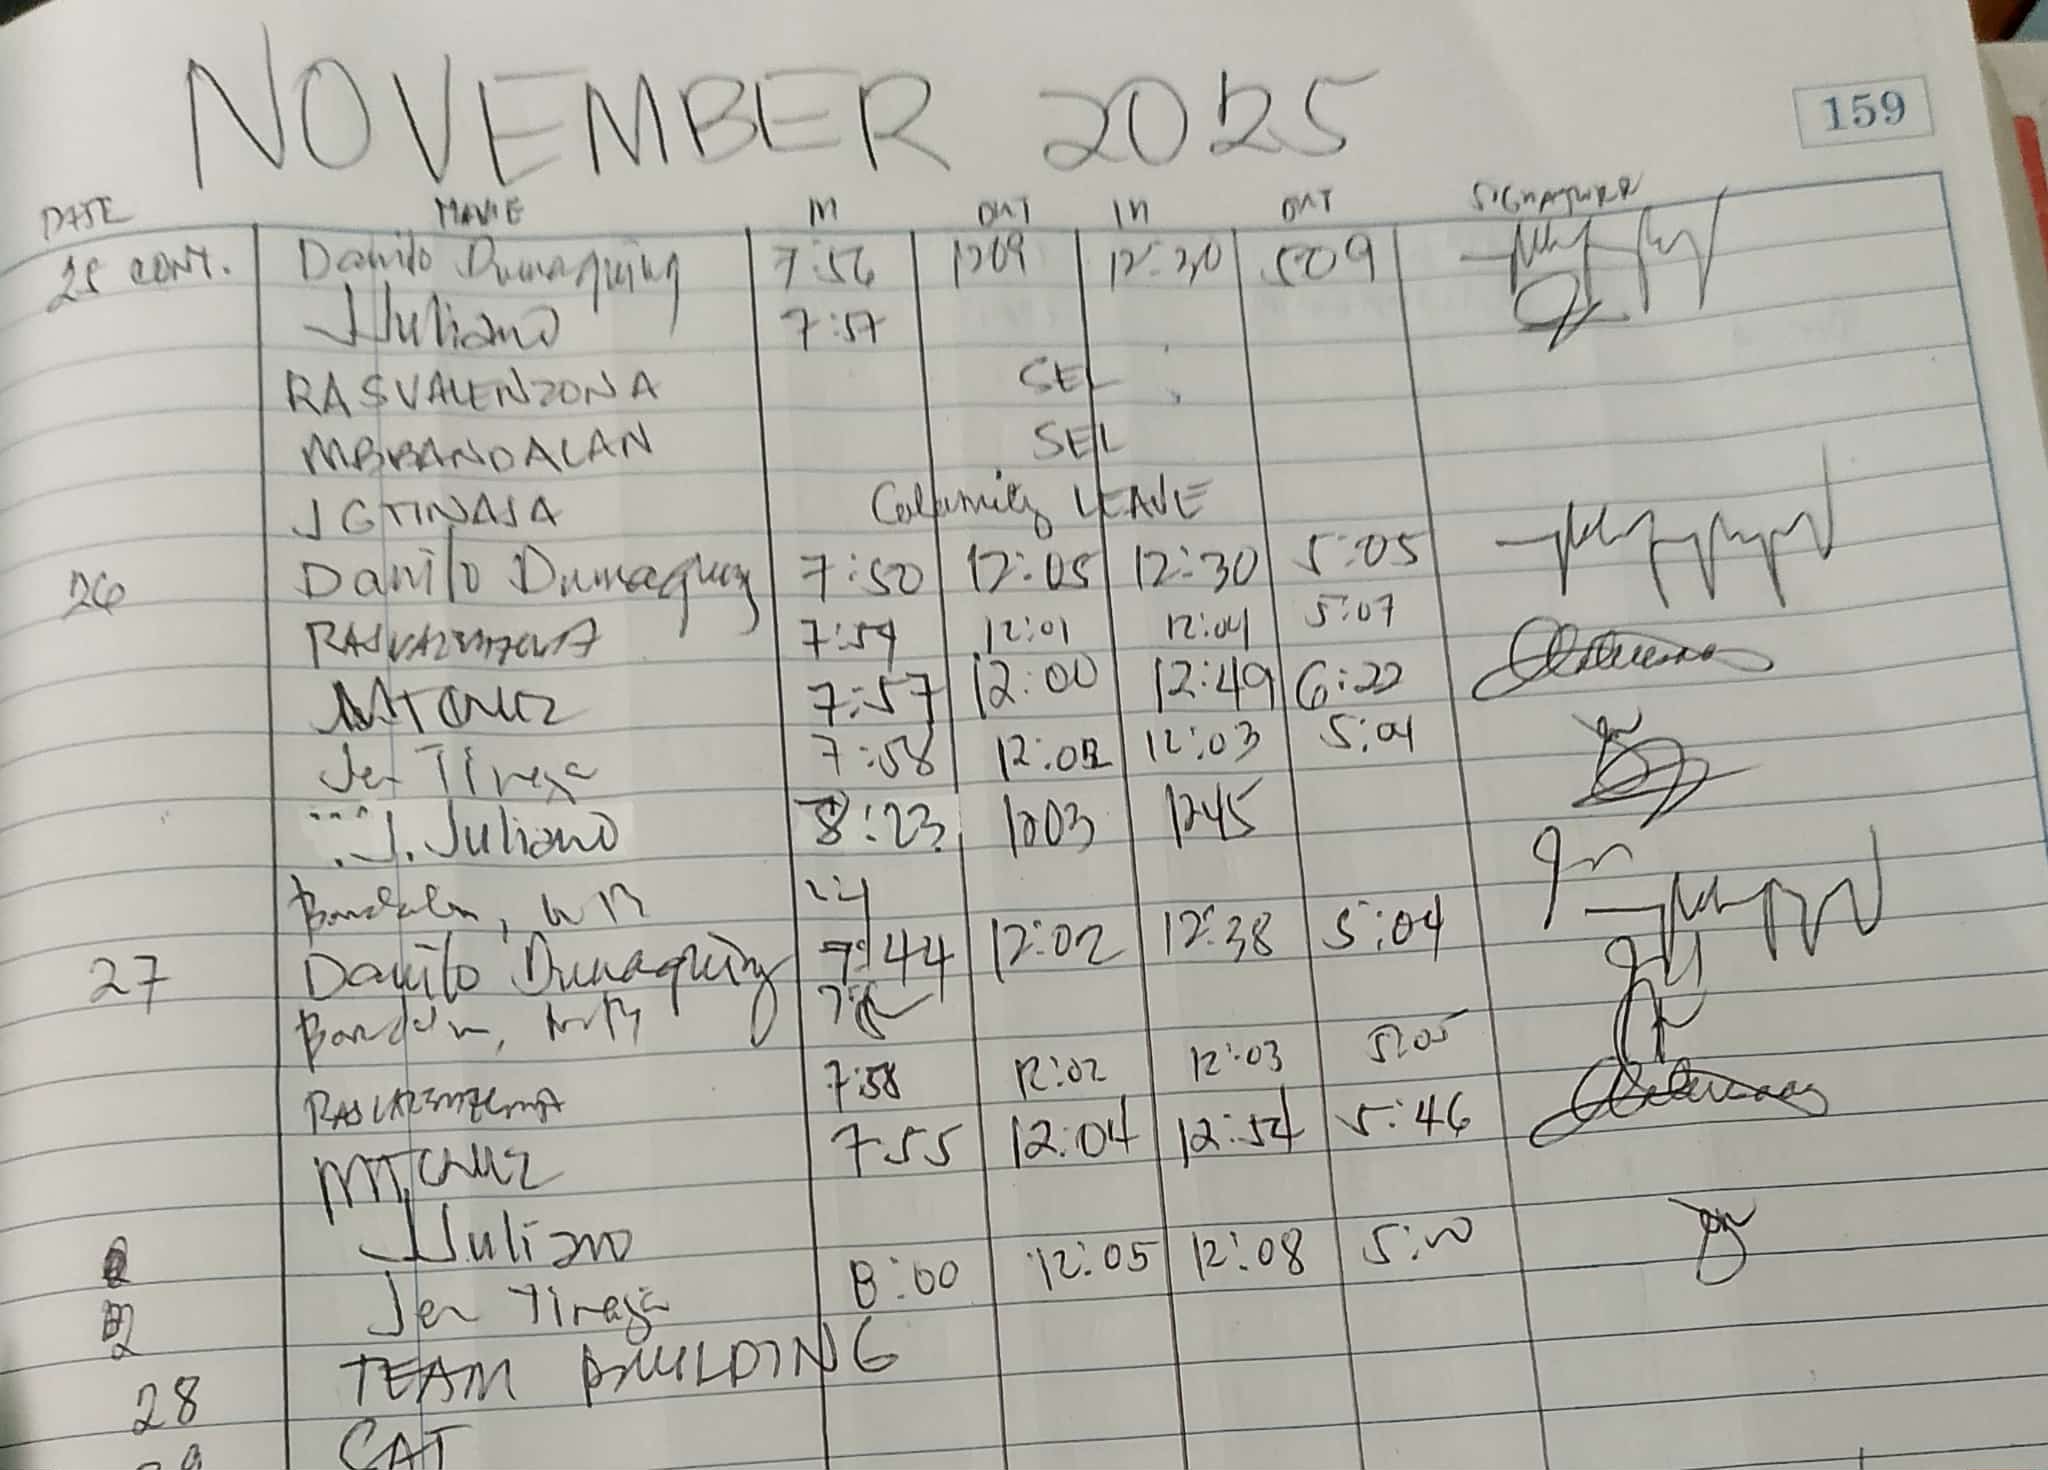 NOVEMBER 2025
159
DATE NAME IN OUT IN OUT SIGNATURE
25 CONT. Danilo Dumaquing 7:56 1209 12:30 509
JJuliano 7:57
RASVALENZONA SEL
MBBANDALAN SEL
JGTINAJA Calamity LEAVE
26 Danilo Dumaquing 7:50 12:05 12:30 5:05
7:59 12:01 12:04 5:07
MTCRUZ 7:57 12:00 12:49 6:22
Jen 7:58 12:02 12:03 5:04
J. Juliano 8:23 1203 1245
27 Danilo Dumaquing 7:44 12:02 12:38 5:04
7:58 12:02 12:03 5:05
MTCRUZ 7:55 12:04 12:54 5:46
JJuliano
Jen 8:00 12:05 12:08 5:00
28 TEAM BUILDING
SAT